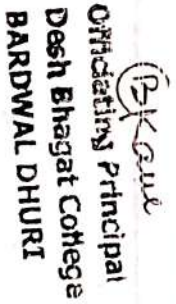 BKaul
Officiating Principal
Desh Bhagat College
BARDWAL DHURI